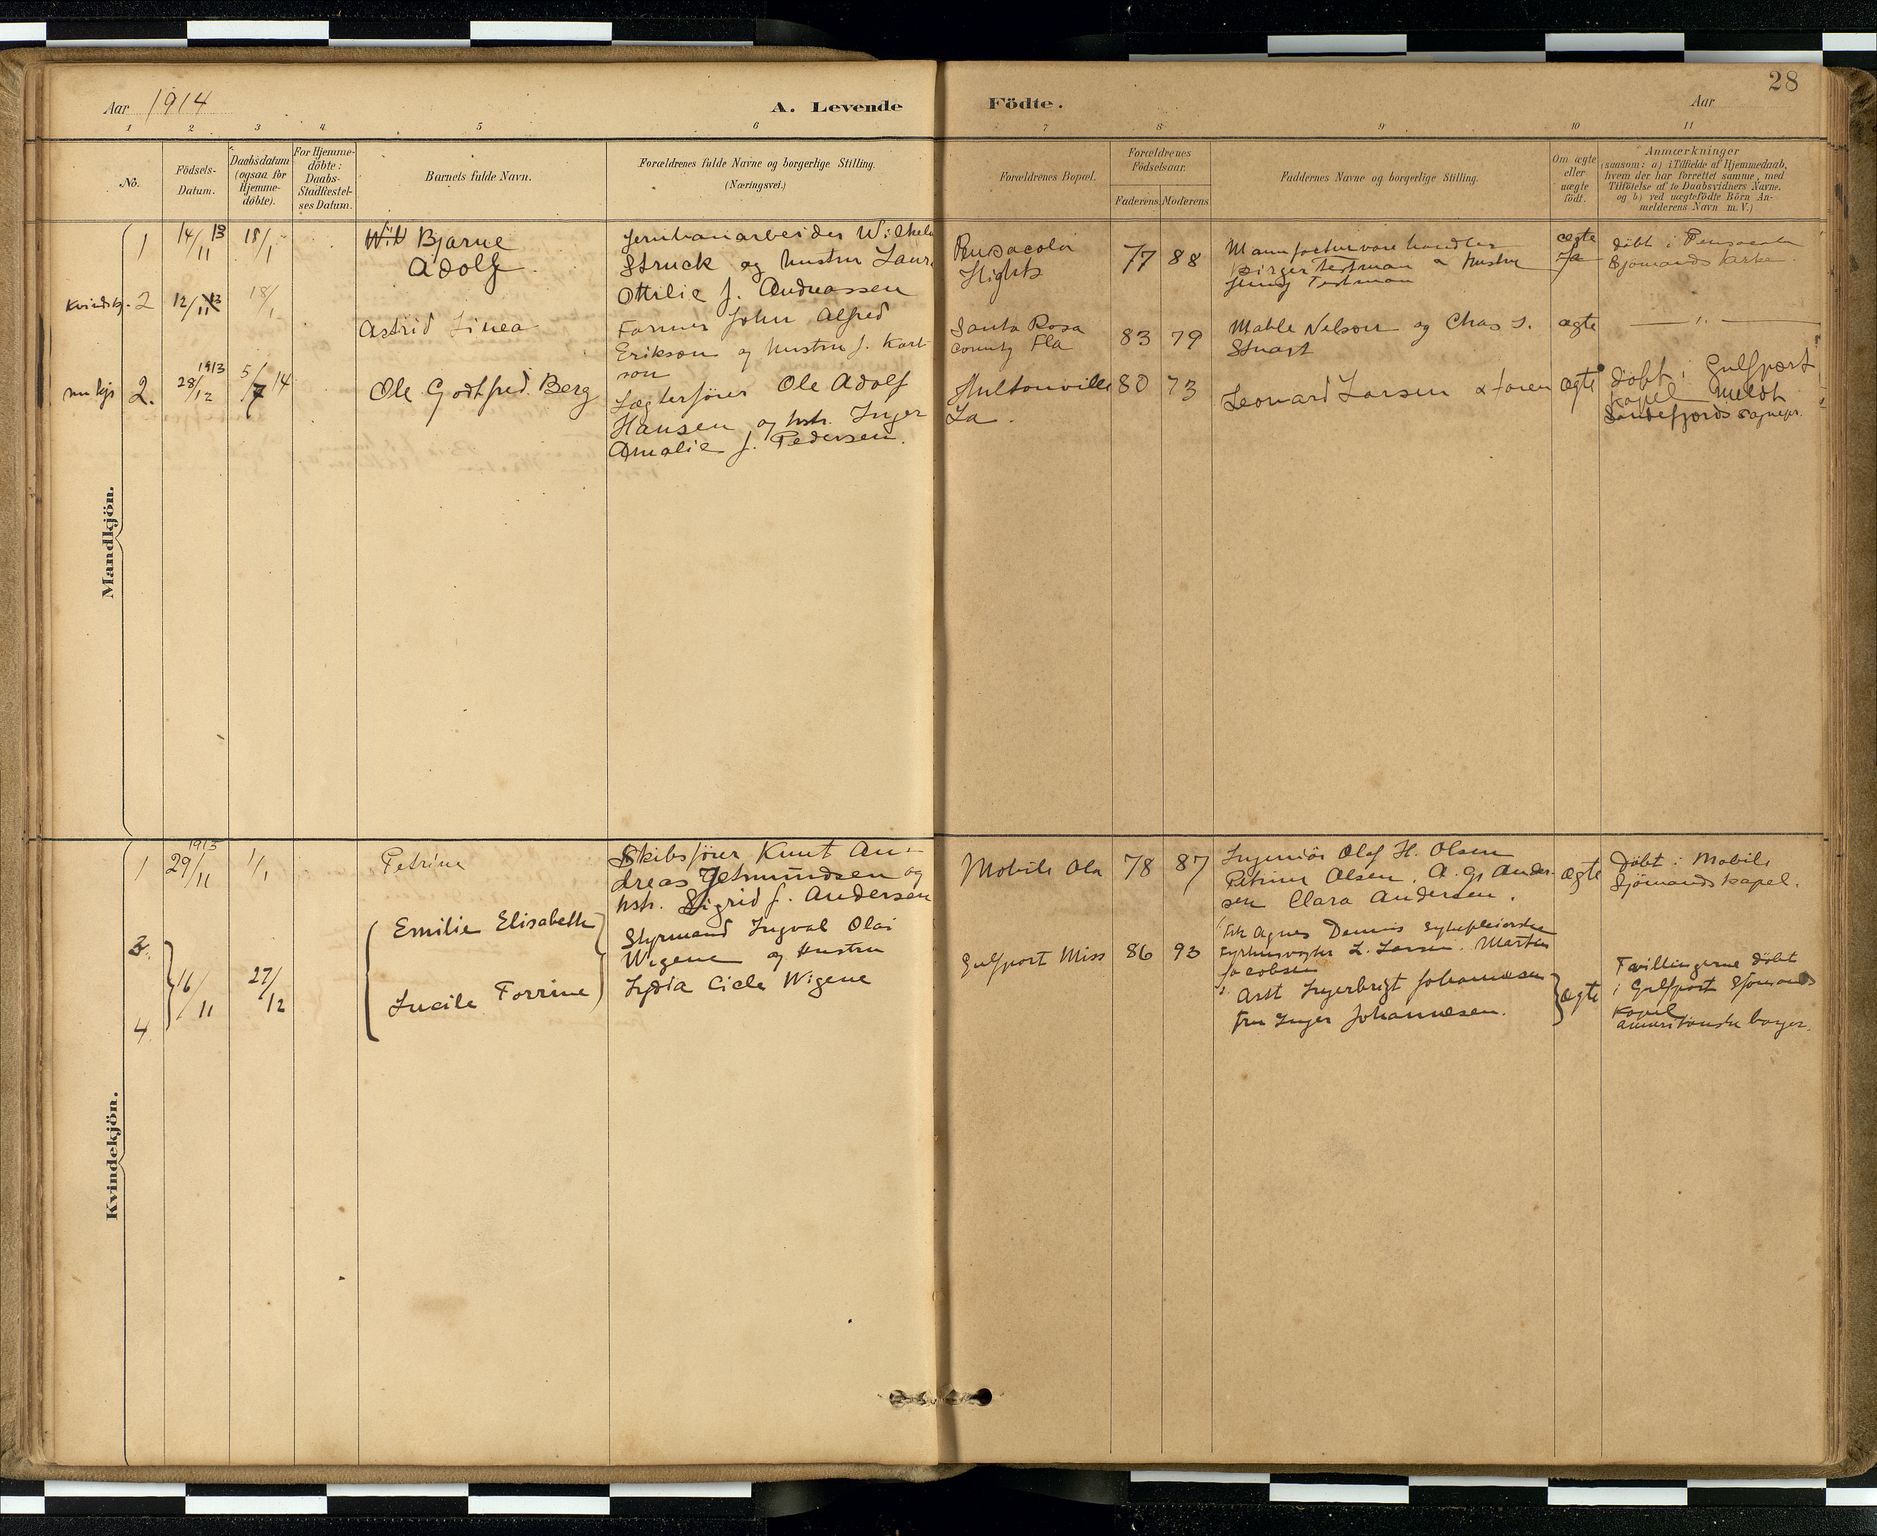 Aar 1914
A. Levende Födte.
Aar
28
1 2 3 4 5 6 7 8 9 10 11
No.
Födsels-
Datum.
Daabsdatum
(ogsaa for
Hjemme-
döbte).
For Hjemme-
döbte:
Daabs-
Stadfæstel-
ses Datum.
Barnets fulde Navn.
Forældrenes fulde Navne og borgerlige Stilling.
(Næringsvei.)
Forældrenes Bopæl.
Forældrenes
Födselsaar.
Faderens. Moderens.
Faddernes Navne og borgerlige Stilling.
Om ægte
eller
uægte
födt.
Anmærkninger
(saasom: a) i Tilfælde af Hjemmedaab,
hvem der har forrettet samme, med
Tilföielse af to Daabsvidners Navne.
og b) ved uægtefödte Börn An-
melderens Navn m. V.)
Mandkjön.
1
14/11 13
18/1
Bjarne
Adolf
Jernbanarbeider Wilhelm
Struck og hustru Laura
Ottilie f. Andreassen
Pensacola
Hights
77 88
Manufacturvare handler
Birger Testman & hustru
Jenny Testman
ægte
Ja
døbt i Pensacola
Sjømands kirke.
Kvindekj. 2
12/11 13
18/1
Astrid Linea
Farmer John Alfred
Erikson og hustru f. Karl
son
Santa Rosa
County Fla
83 79
Mable Nelson og Chas S.
Stuart
ægte
— " —
2.
28/12 1913
5/7 14
Ole Godtfred Berg
Lægterfører Ole Adolf
Hansen og hstr. Inger
Amalie f. Pedersen.
Hultonville
La.
80 73
Leonard Larsen &
ægte
døbt i Gulfport
Kapel Meldt
Sandefjords sognepr.
Kvindekjön.
1
29/11 1913
1/1
Petrine
Skibsfører Knut An-
dreas Jetmundsen og
hstr. Sigrid f. Andersen
Mobile Ala
78 87
Ingeniör Olaf H. Olsen
Petrine Olsen. A. G. Ander-
sen Clara Andersen.
ægte
Døbt i Mobile
Sjømandskapel.
3.
4
16/11
27/12
Emilie Elisabeth
Lucile Torrine
Styrmand Ingval Olai
Wigene og Hustru
Lydia Cicle Wigene
Gulfport Miss
86 93
Frk Agnes Dennis Sykepleierske
Fyrhusvogter L. Larsen. Martin
Jacobsen
Asst Ingerbrigt Johannesen
Fru Inger Johannesen.
ægte
Tvillingerne døbt
i Gulfport Sjømands
Kapel
Amerikanske borger.